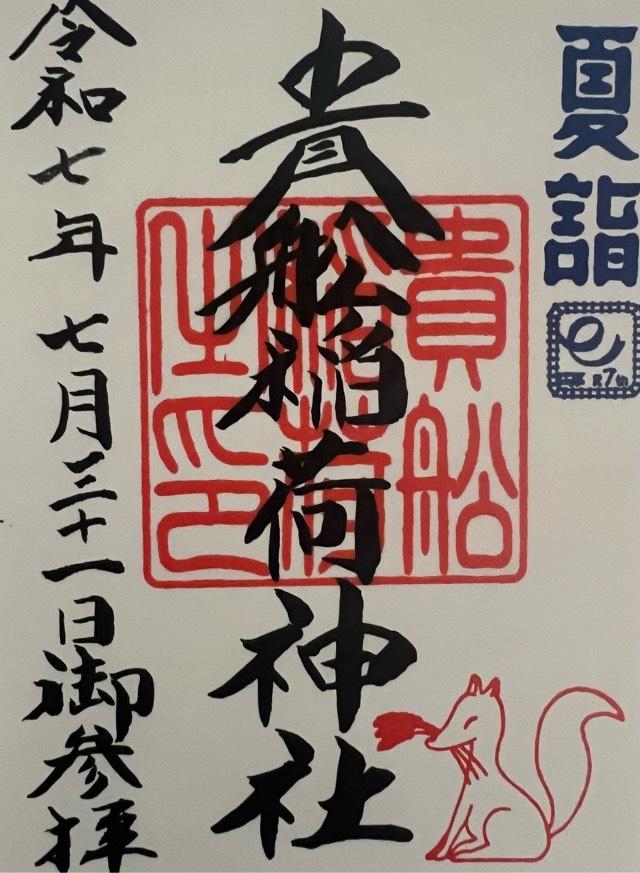 夏詣
R7th
貴船稲荷神社
貴船
稲荷
生印
令和七年七月三十一日御参拝